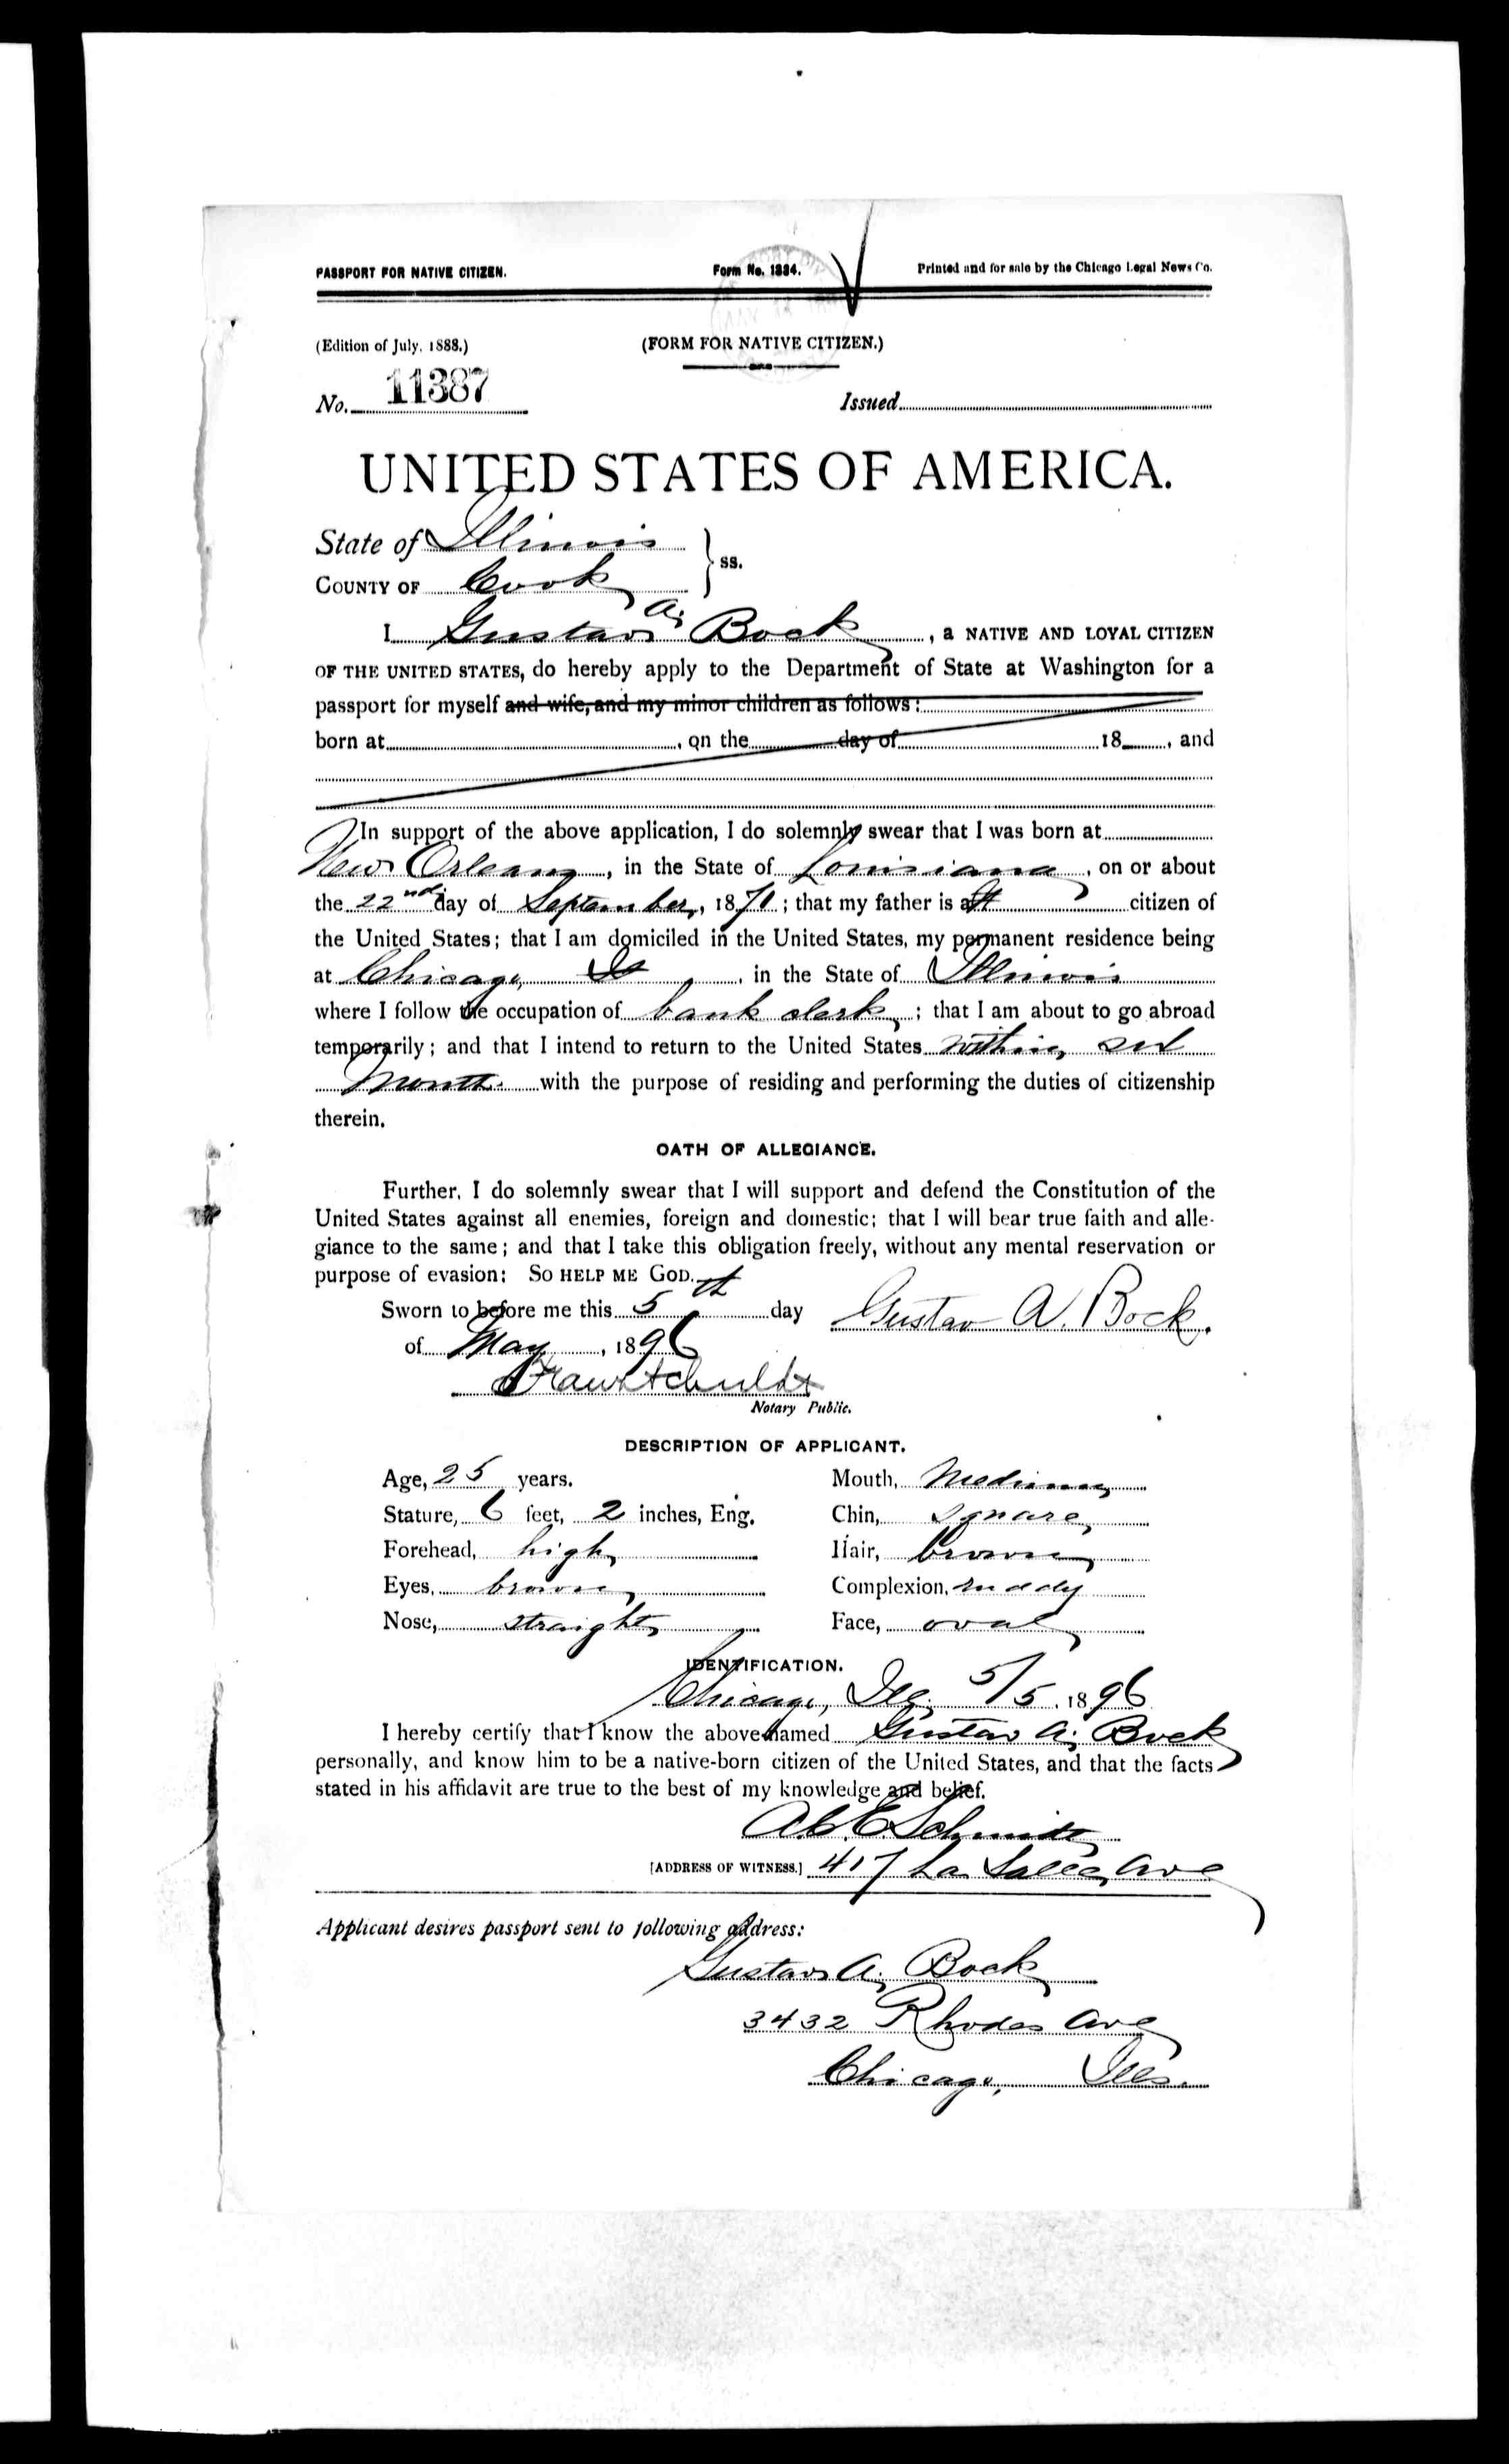 PASSPORT FOR NATIVE CITIZEN. Form No. 1334. Printed and for sale by the Chicago Legal News Co.
(Edition of July, 1888.) (FORM FOR NATIVE CITIZEN.)
No. 11387 Issued
UNITED STATES OF AMERICA.
State of Illinois
COUNTY OF Cook } ss.
I Gustav A. Bock, a NATIVE AND LOYAL CITIZEN
OF THE UNITED STATES, do hereby apply to the Department of State at Washington for a
passport for myself and wife, and my minor children as follows:
born at , on the day of 18 , and
In support of the above application, I do solemnly swear that I was born at
New Orleans, in the State of Louisiana, on or about
the 22nd day of September, 1870; that my father is a citizen of
the United States; that I am domiciled in the United States, my permanent residence being
at Chicago, in the State of Illinois
where I follow the occupation of bank clerk; that I am about to go abroad
temporarily; and that I intend to return to the United States within
month with the purpose of residing and performing the duties of citizenship
therein.
OATH OF ALLEGIANCE.
Further, I do solemnly swear that I will support and defend the Constitution of the
United States against all enemies, foreign and domestic; that I will bear true faith and alle-
giance to the same; and that I take this obligation freely, without any mental reservation or
purpose of evasion: SO HELP ME GOD.
Sworn to before me this 5th day Gustav A. Bock.
of May, 1896
Notary Public.
DESCRIPTION OF APPLICANT.
Age, 25 years. Mouth, Medium
Stature, 6 feet, 2 inches, Eng. Chin, Square
Forehead, high Hair, brown
Eyes, brown Complexion, ruddy
Nose, straight Face, oval
IDENTIFICATION.
Chicago, Ill. 5/5, 1896
I hereby certify that I know the above named Gustav A. Bock
personally, and know him to be a native-born citizen of the United States, and that the facts
stated in his affidavit are true to the best of my knowledge and belief.
A.C.E. Schmidt
[ADDRESS OF WITNESS.] 417 La Salle Ave
Applicant desires passport sent to following address:
Gustav A. Bock
3432 Rhodes Ave
Chicago, Ills.